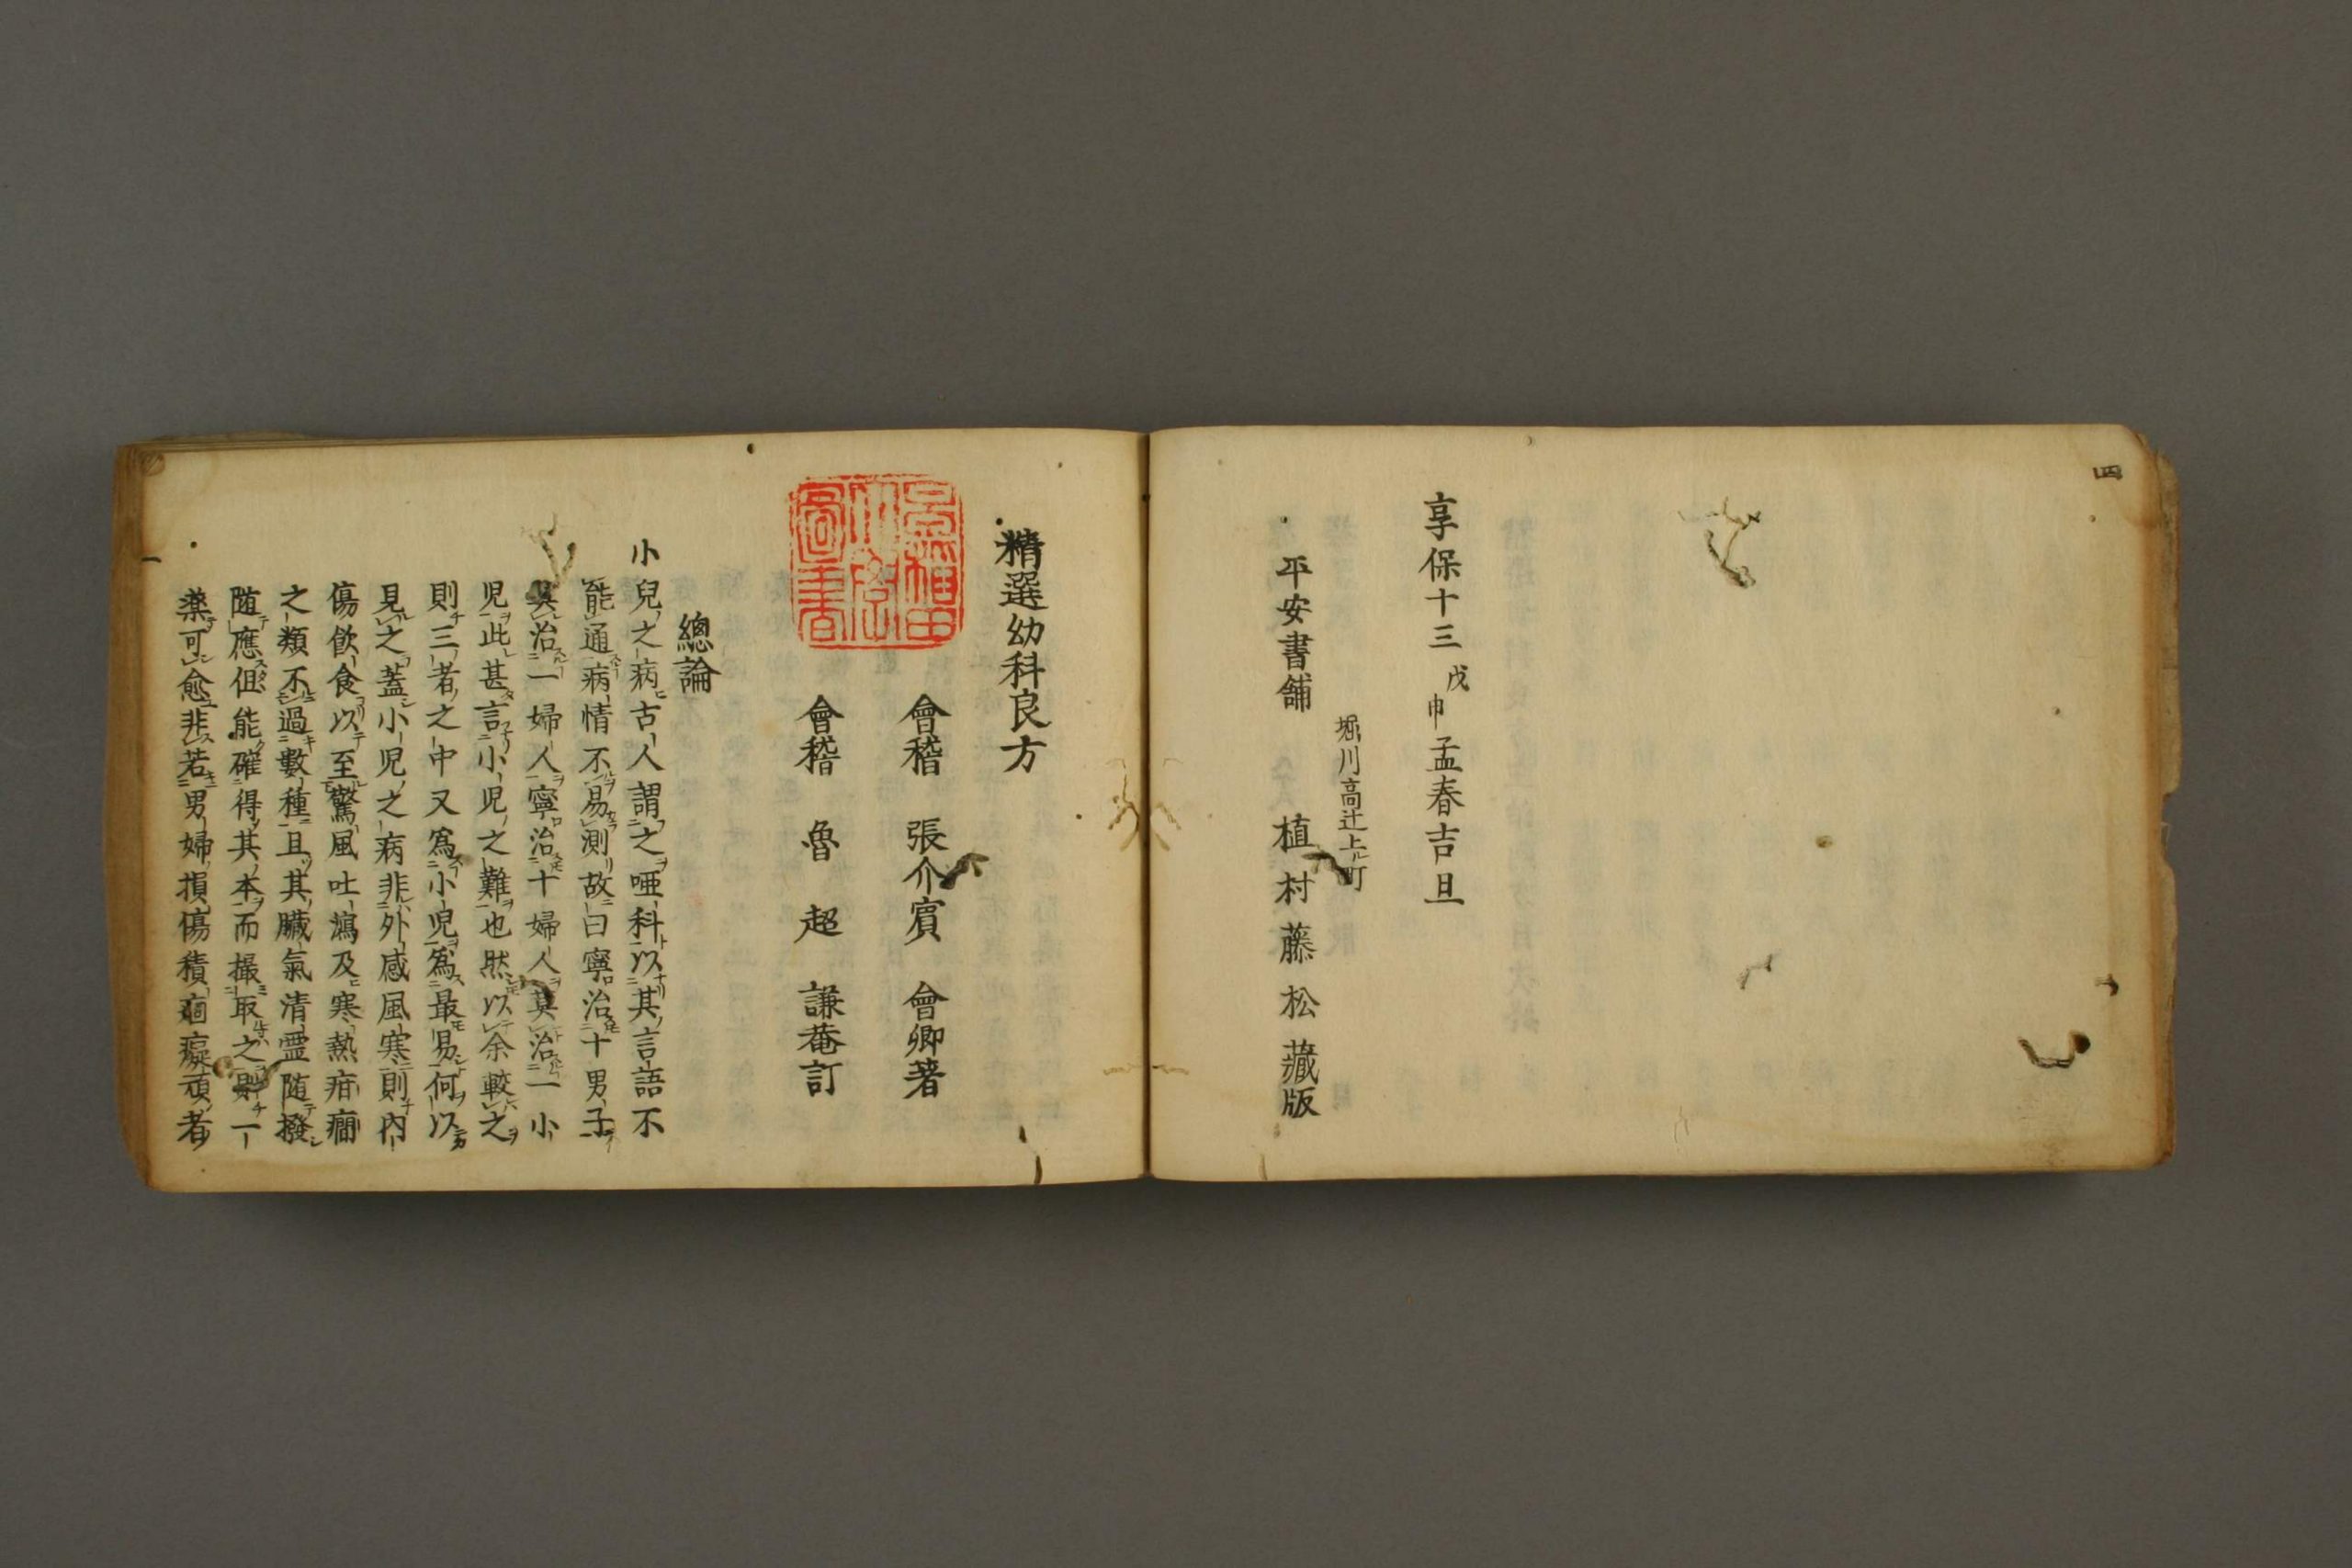 四
享保十三戊申孟春吉旦
堀川高辻上ル町
平安書舗 植村藤松藏版
精選幼科良方
會稽 張介賓 會卿著
會稽 魯超 謙菴訂
總論
小兒之病古人謂之啞科以其言語不
能通病情不易測故曰寧治十男子
莫治一婦人寧治十婦人莫治一小
児此甚言小児之難也然以余較之
則三者之中又為小児為最易何以
見之蓋小児之病非外感風寒則內
傷飲食以至驚風吐瀉及寒熱疳癎
之類不過數種且其臓氣清霊随撥
随應但能確得其本而撮取之則一
藥可愈非若男婦損傷積痼癡頑者